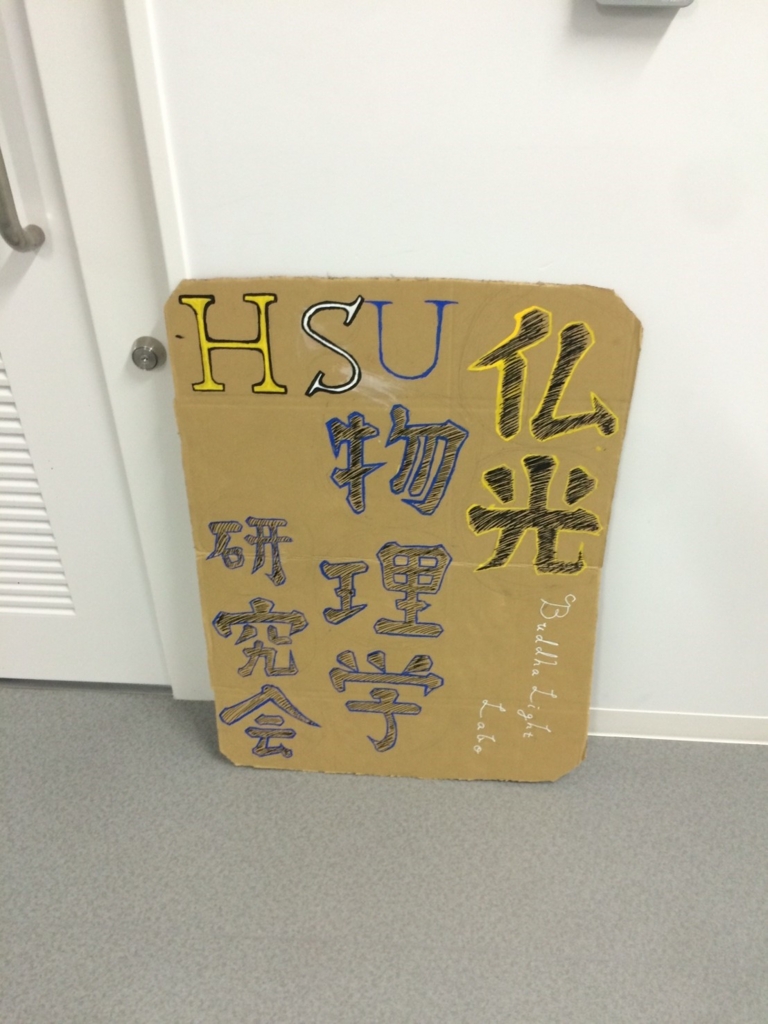 HSU
仏光
Buddha Light
Labo
物理学
研究会